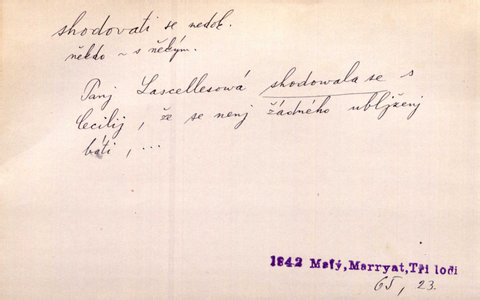 shodovati se nedok.
někdo ~ s někým.
Panj Lascellesowá shodowala se s
Cecilij, že se nenj žádného ubljženj
báti, ...
1842 Malý, Marryat, Tři lodi
65, 23.